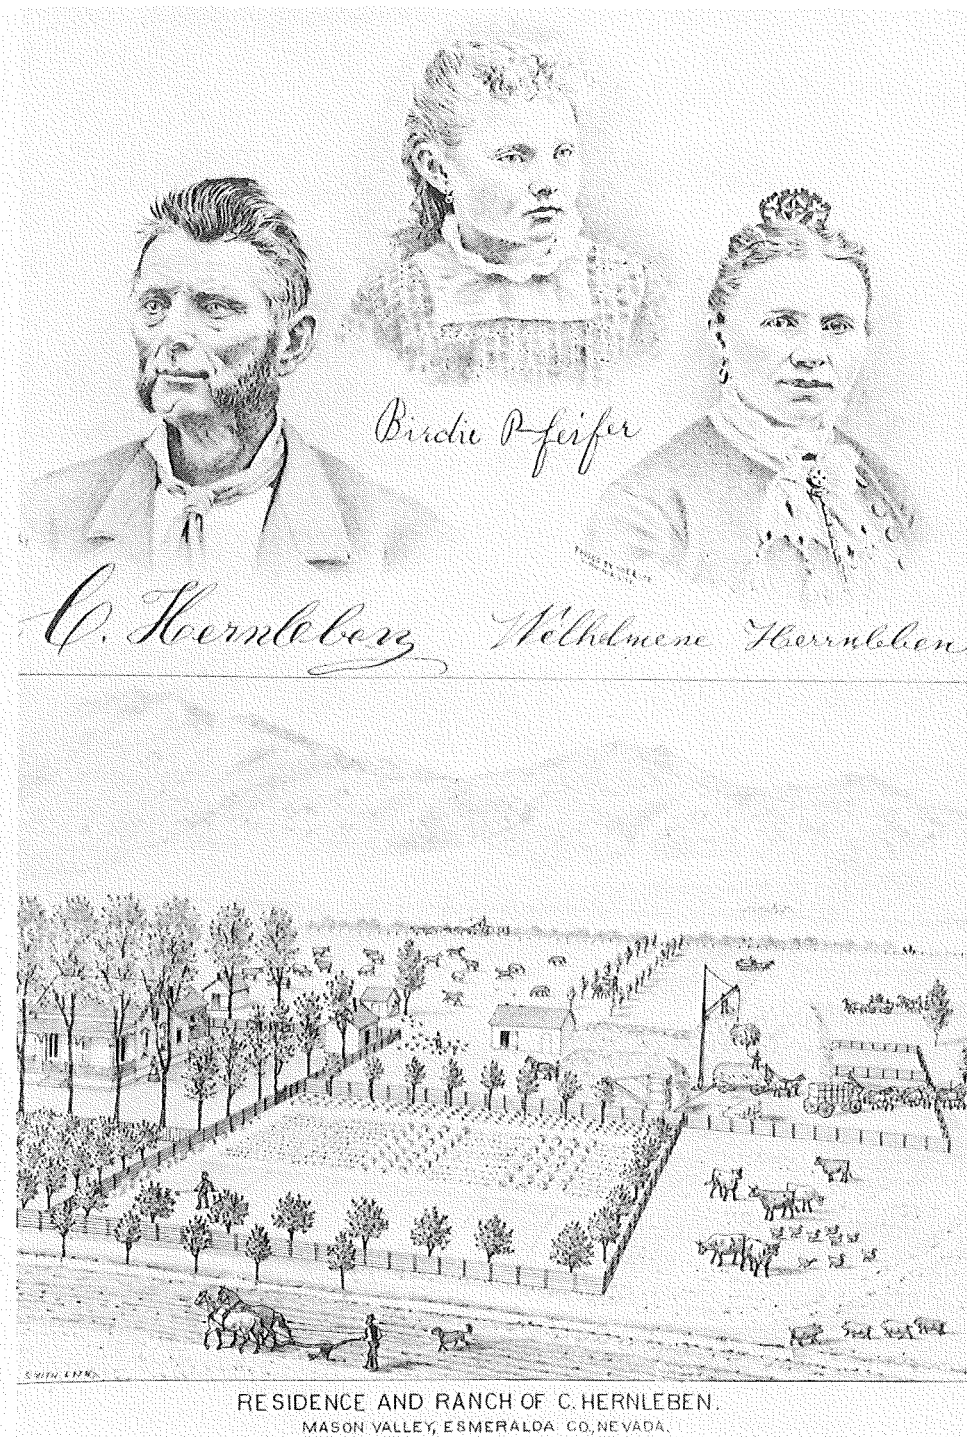 Birdie Pfeifer
C. Hernleben
Wilhelmene Herrnleben
RESIDENCE AND RANCH OF C. HERNLEBEN.
MASON VALLEY, ESMERALDA CO., NEVADA.